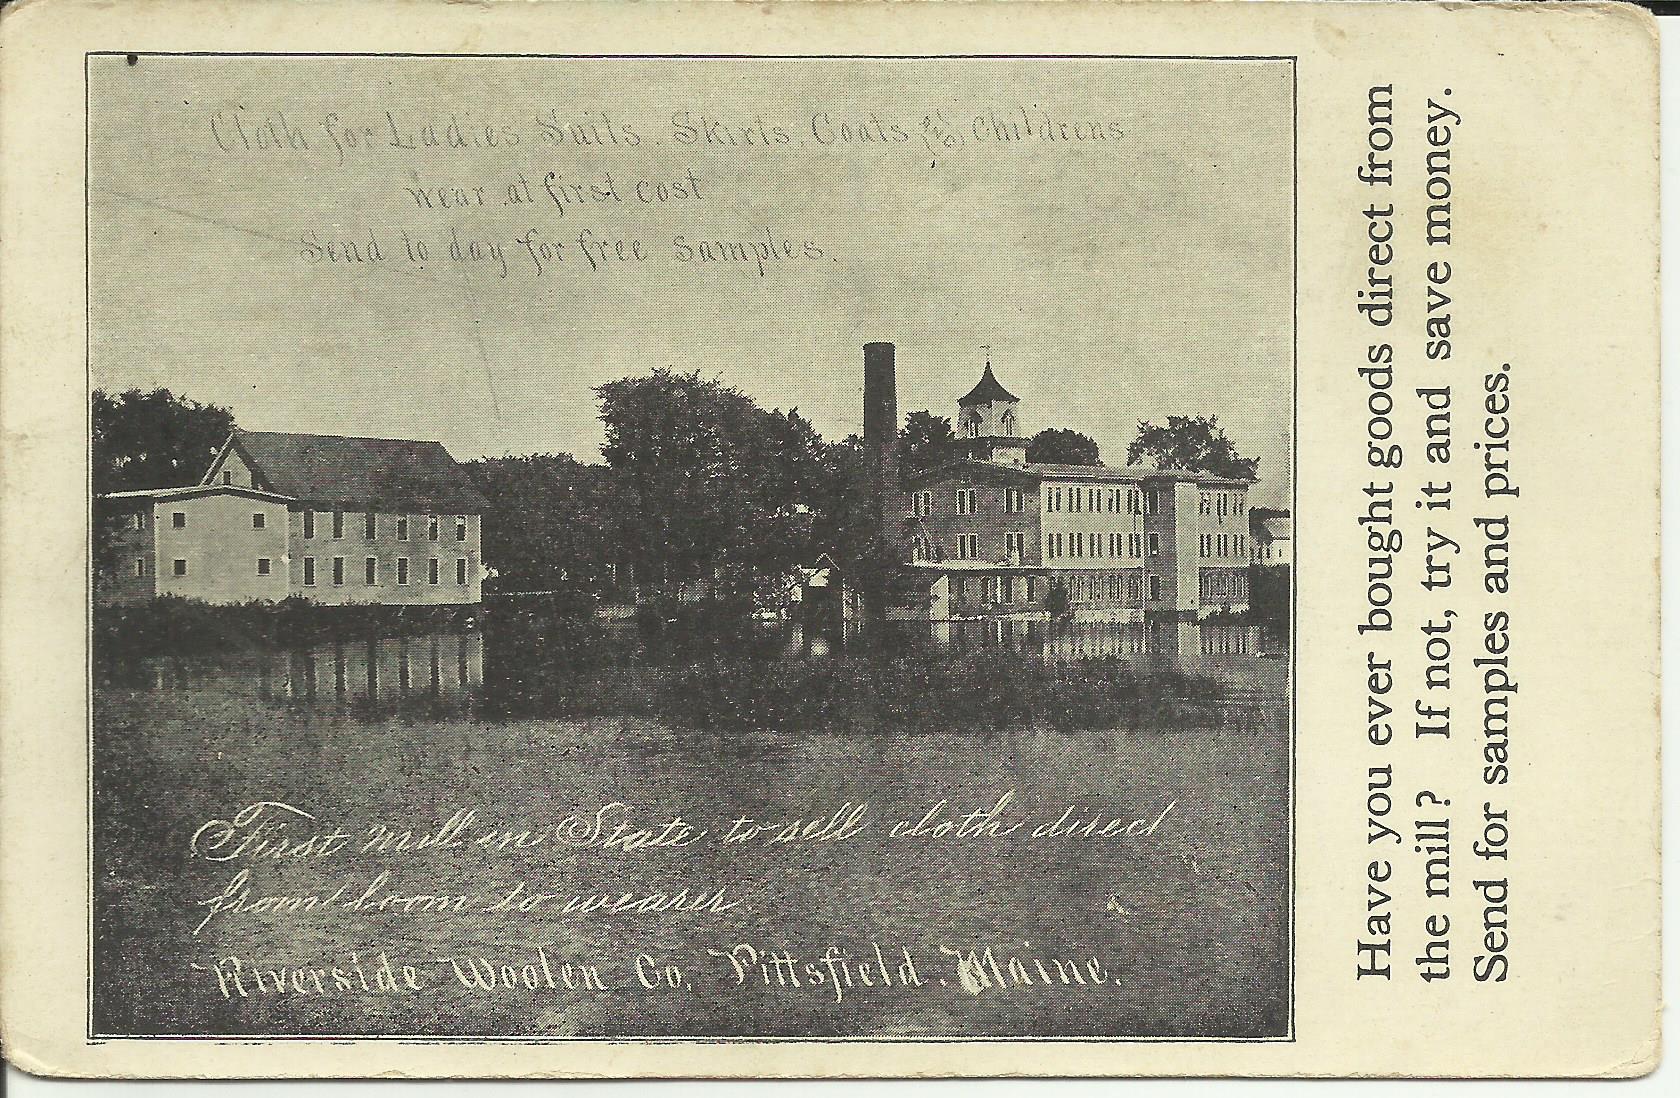 Cloth for Ladies Suits, Skirts, Coats & Childrens
wear at first cost
Send to day for free samples.
First mill in State to sell cloth direct
from loom to wearer
Riverside Woolen Co. Pittsfield. Maine.
Have you ever bought goods direct from
the mill? If not, try it and save money.
Send for samples and prices.